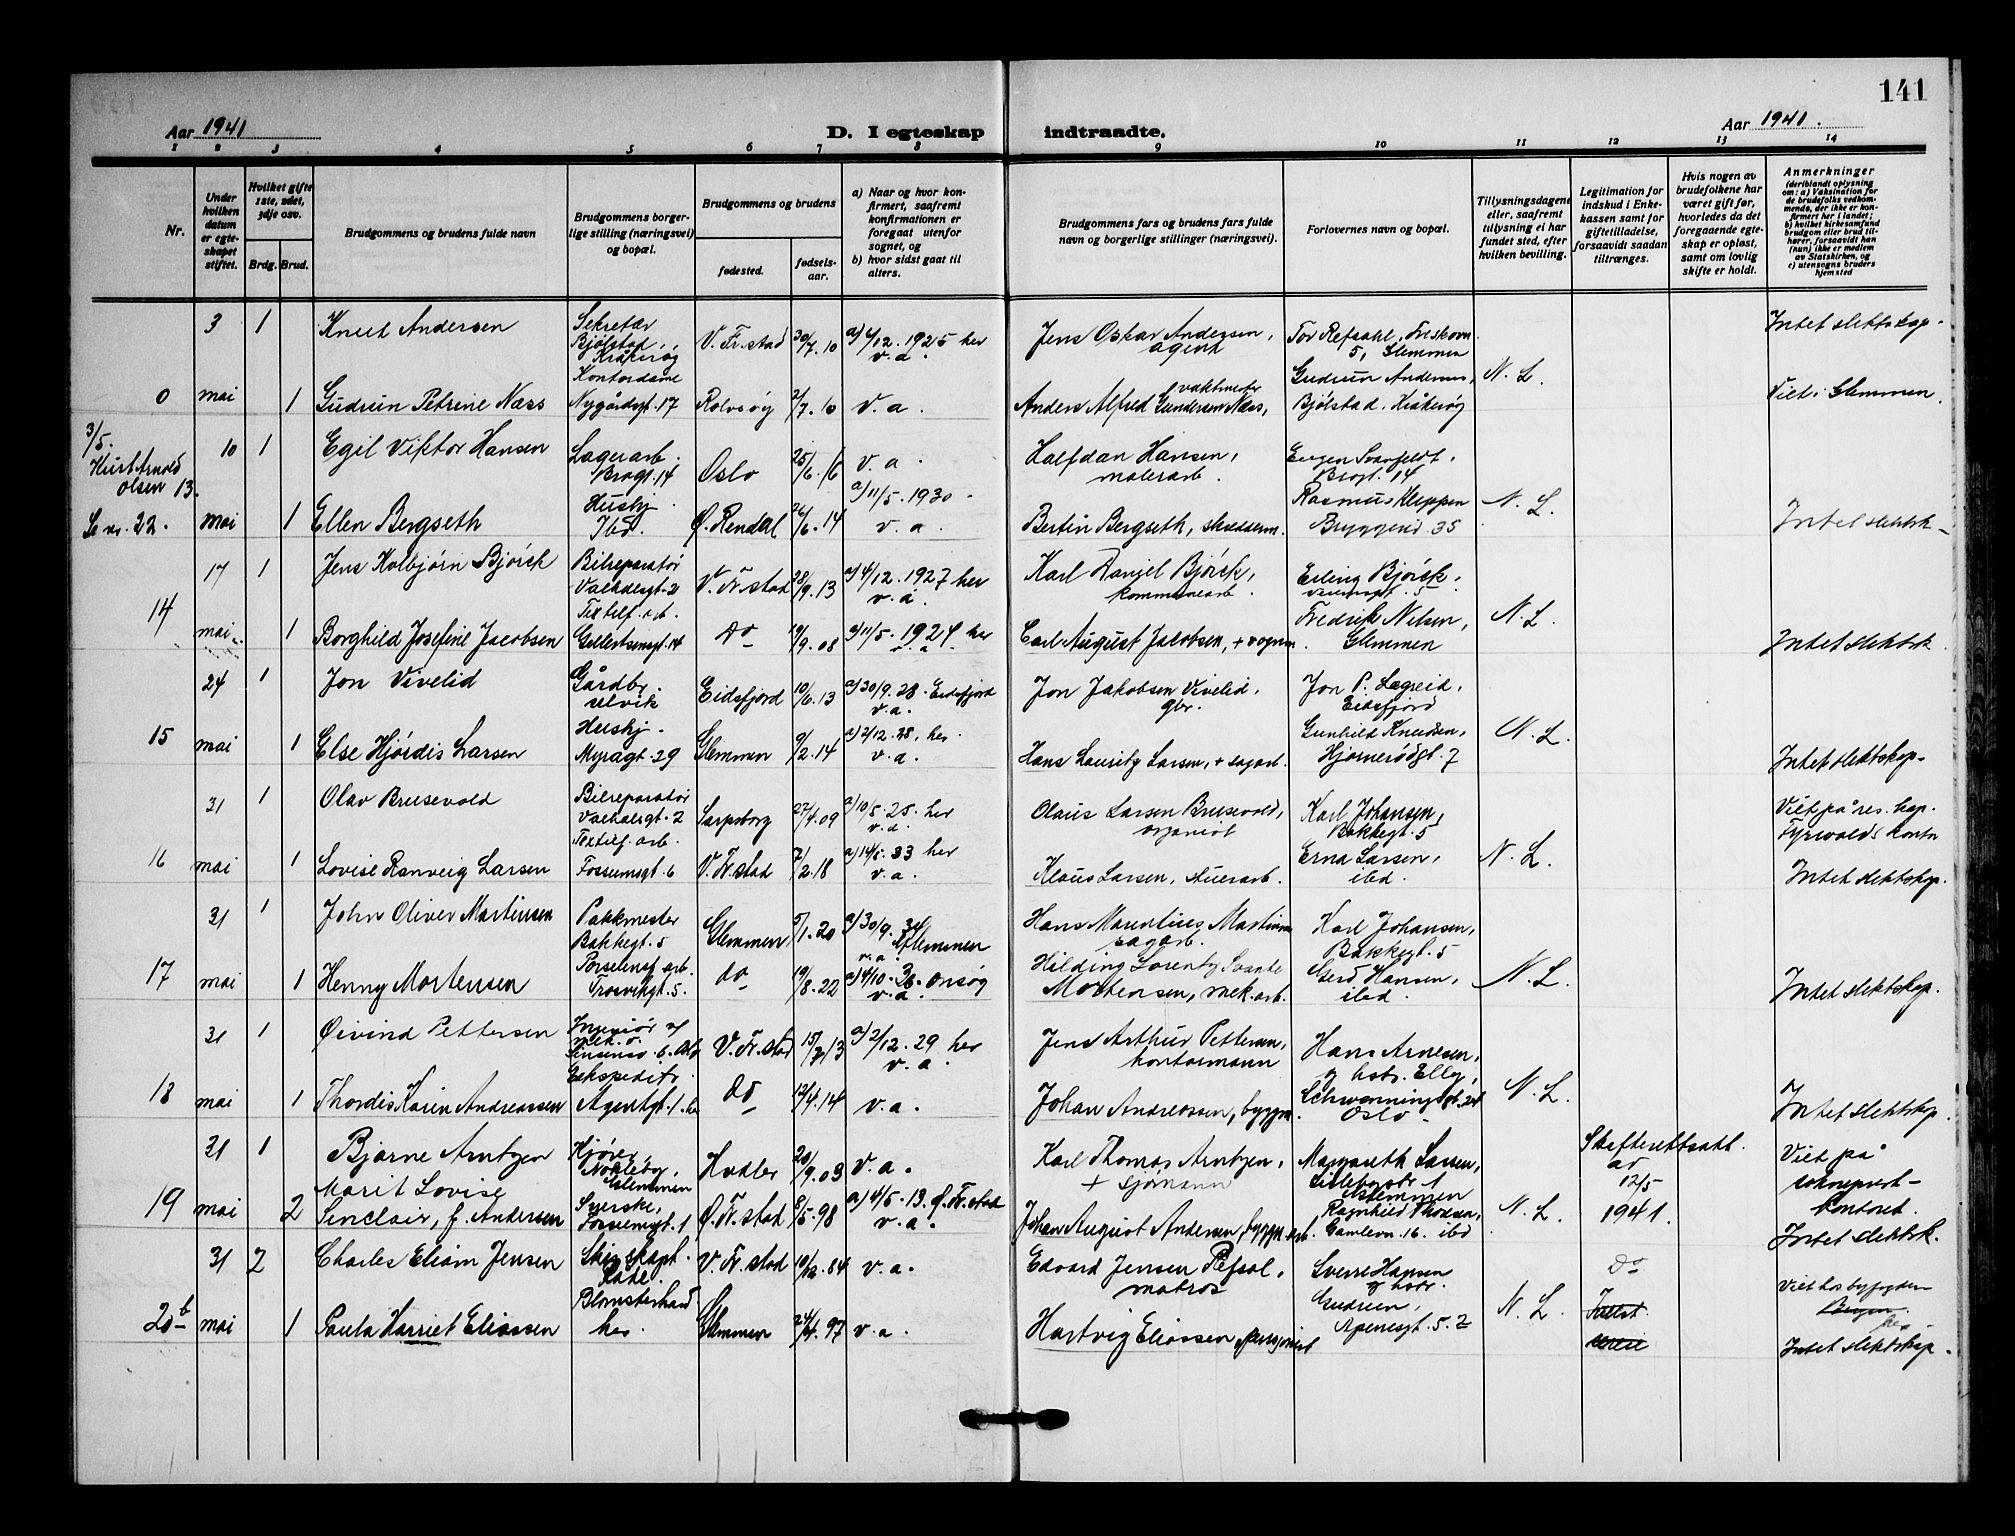 141
Aar 1941
D. I egteskap indtraadte.
Aar 1941.
1 2 3 4 5 6 7 8 9 10 11 12 13 14
Nr.
Under hvilken datum er egteskapet stiftet.
Hvilket gifte 1ste, 2det, 3dje osv.
Brdg. Brud.
Brudgommens og brudens fulde navn
Brudgommens borgerlige stilling (næringsvei) og bopæl.
Brudgommens og brudens
fødested.
fødselsaar.
a) Naar og hvor konfirmert, saafremt konfirmationen er foregaat utenfor sognet, og
b) hvor sidst gaat til alters.
Brudgommens fars og brudens fars fulde navn og borgerlige stillinger (næringsvei).
Forlovernes navn og bopæl.
Tillysningsdagene eller, saafremt tillysning ei har fundet sted, efter hvilken bevilling.
Legitimation for indskud i Enkekassen samt for giftetilladelse, forsaavidt saadan tiltrænges.
Hvis nogen av brudefolkene har været gift før, hvorledes da det foregaaende egteskap er opløst, samt om lovlig skifte er holdt.
Anmerkninger
(deriblandt oplysning om: a) Vaksination for de brudefolks vedkommende, der ikke er konfirmert her i landet; b) hvilket kirkesamfund brudgom eller brud tilhører, forsaavidt han (hun) ikke er medlem av Statskirken, og c) utensogns bruders hjemsted
3 1 Knut Andersen Sekretær Bjølstad, Kråkerøy V. Fr.stad 30/7.10 a) 4/12.1925 her v.a. Jens Oskar Andersen, agent Tor Refsahl, Glemmen Intet slektskap.
0 mai 1 Gudrun Petrine Næss Kontordame Nygårdsgt. 17 Rolvsøy 2/7.10 v.a. Anders Alfred Gundersen Næss, vaktmester Gudrun Andersen, Bjølstad. Kråkerøy N. L. Viet i Glemmen.
3/5. Kurt Arnold Olsen 13. Se nr. 22.
10 1 Egil Viktor Hansen Lagerarb. Brogt. 14 Oslo 25/6.16 v.a. Halfdan Hansen, malerarb. Eugen Svanfeldt, Brogt. 14
mai 1 Ellen Bergseth Hushj. Ibd. Ø. Rendal 26/6.14 a) 11/5.1930. v.a. Bertin Bergseth, skredderm. Rasmus Kleppen Bryggerid. 35 N. L. Intet slektsk.
17 1 Jens Kolbjørn Bjørck Bilreparatør Valhallsgt. 2 V. Fr.stad 28/9.13 a) 4/12.1927 her v.a. Karl Daniel Bjørck, kommunearb. Erling Bjørck,
14 mai 1 Borghild Josefine Jacobsen Textilf. arb. Gellertsensgt. 14 Do 19/9.08 a) 11/5.1924 her v.a. Carl August Jacobsen, + vognm. Fredrik Nilsen, Glemmen N. L. Intet slektsk.
24 1 Jon Vivelid Gårdbr. Ulvik Eidsfjord 10/6.13 a) 30/9.28. Eidsfjord v.a. Jon Jakobsen Vivelid, gbr. Jon P. Lægreid, Eidsfjord
15 mai 1 Else Hjørdis Larsen Hushj. Myragt. 29 Glemmen 9/2.14 a) 2/12.28, her. v.a. Hans Lauritz Larsen, + sagarb. Gunhild Knudsen, Hjørnerødgt. 7 N. L. Intet slektskap.
31 1 Olav Brusevold Bilreparatør Valhallsgt. 2 Sarpsborg 27/4.09 a) 10/5.25. her v.a. Olaus Larsen Brusevold, organist Karl Johansen, Bakkegt. 5 Viet på res. kap. Fyrwalds kontor
16 mai 1 Lovise Ranveig Larsen Textilf. arb. Fossumsgt. 6 V. Fr.stad 7/2.18 a) 14/5.33 her v.a. Klaus Larsen, stuerarb. Erna Larsen, ibd. N. L. Intet slektskap.
31 1 John Oliver Martinsen Pakkmester Bakkegt. 5 Glemmen 5/1.20 a) 30/9.34 Glemmen v.a. Hans Mauritius Martinsen sagarb. Karl Johansen, Bakkegt. 5
17 mai 1 Henny Mortensen Porselensf. arb. Trosvikgt. 5. do 19/8.22 a) 4/10.36. Onsøy v.a. Hilding Lorentz Svante Mortensen, mek. arb. Gerd Hansen, ibd. N. L. Intet slektskap.
31 1 Øivind Pettersen Ingeniør v/ mek. V. Fr.stad 15/7.13 a) 2/12.29 her v.a. Jens Arthur Pettersen, kontormann Hans Arnesen, og hstr. Elly,
18 mai 1 Thordis Karin Andreassen Ekspeditr. Agentgt. 1. her do 12/4.14 v.a. Johan Andreassen, byggm. Schwenningsgt. Oslo N. L. Intet slektskap.
31 1 Bjarne Arntzen Kjører Nokleby, Glemmen Hvaler 20/9.03 v.a. Karl Thomas Arntzen, + sjømann Margareth Larsen, Glemmen Skifterettsatt. av 12/5 1941. Viet på sokneprest-kontoret.
19 mai 2 Marit Lovise Sinclair, f. Andersen Syerske, Fossumsgt. 1 Ø. Fr.stad 8/5.98 a) 4/5.13. Ø. Fr.stad v.a. Johan August Andersen, byggn. arb. Ragnhild Thorsen, Gamlevn. 16. ibd N. L. Intet slektsk.
31 2 Charles Eliam Jensen V. Fr.stad 10/12.84 v.a. Edvard Jensen Refsal, matros Sverre Hansen og hstr. Gudrun, Apenesgt. 5.2 Do Viet hos byfogden her
20 b mai 1 Paula Harriet Eliassen Blomsterhand her. Glemmen 24/4.97 v.a. Hartvig Eliassen, pensjonist N. L. Intet slektskap.